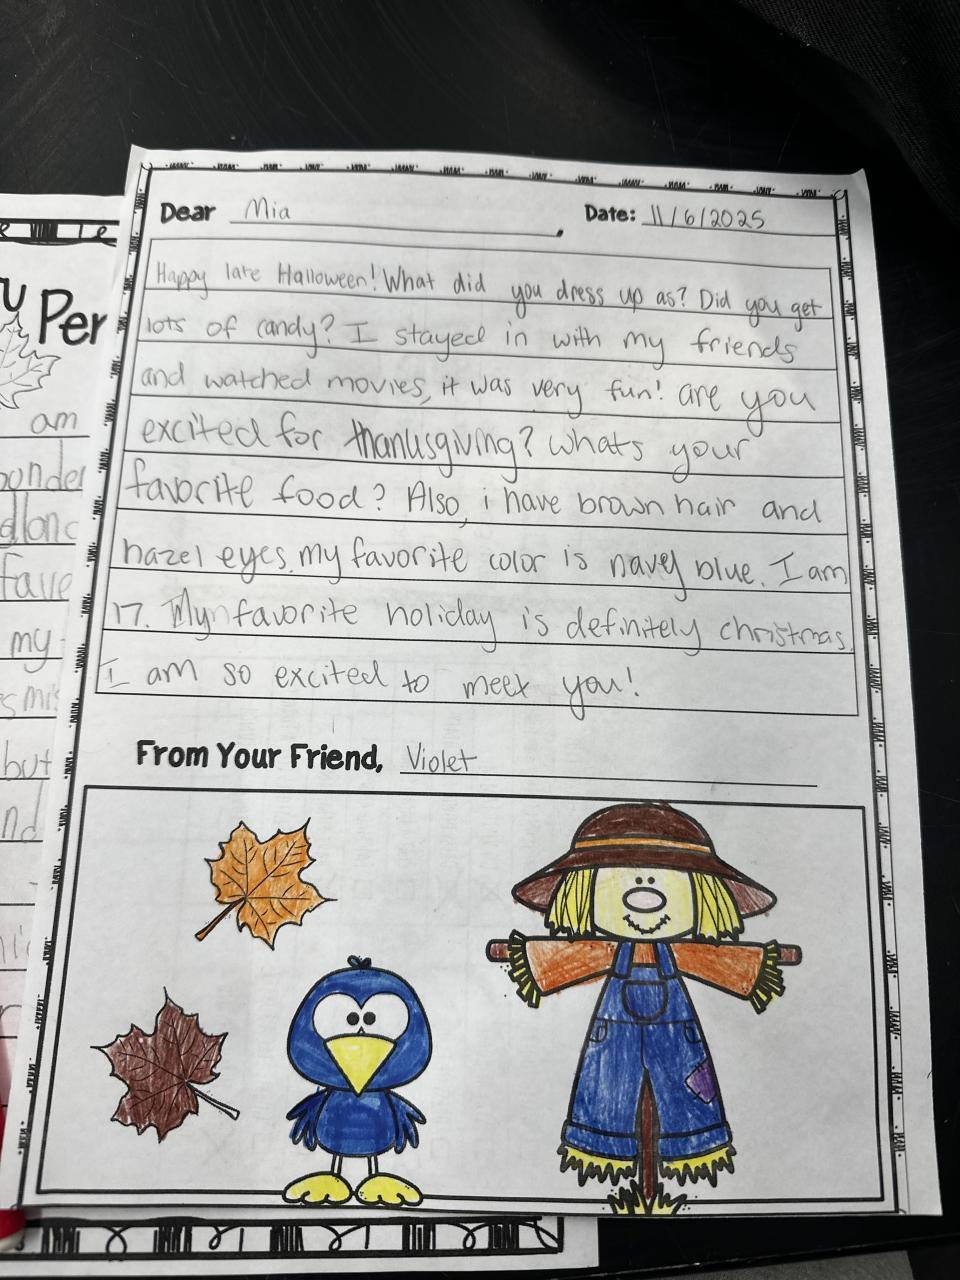 Dear Mia, Date: 11/6/2025
Happy late Halloween! What did you dress up as? Did you get
lots of candy? I stayed in with my friends
and watched movies, it was very fun! are you
excited for thanksgiving? whats your
favorite food? Also, i have brown hair and
hazel eyes. my favorite color is navey blue. I am
17. My favorite holiday is definitely christmas.
I am so excited to meet you!
From Your Friend, Violet
Per
am
my
but